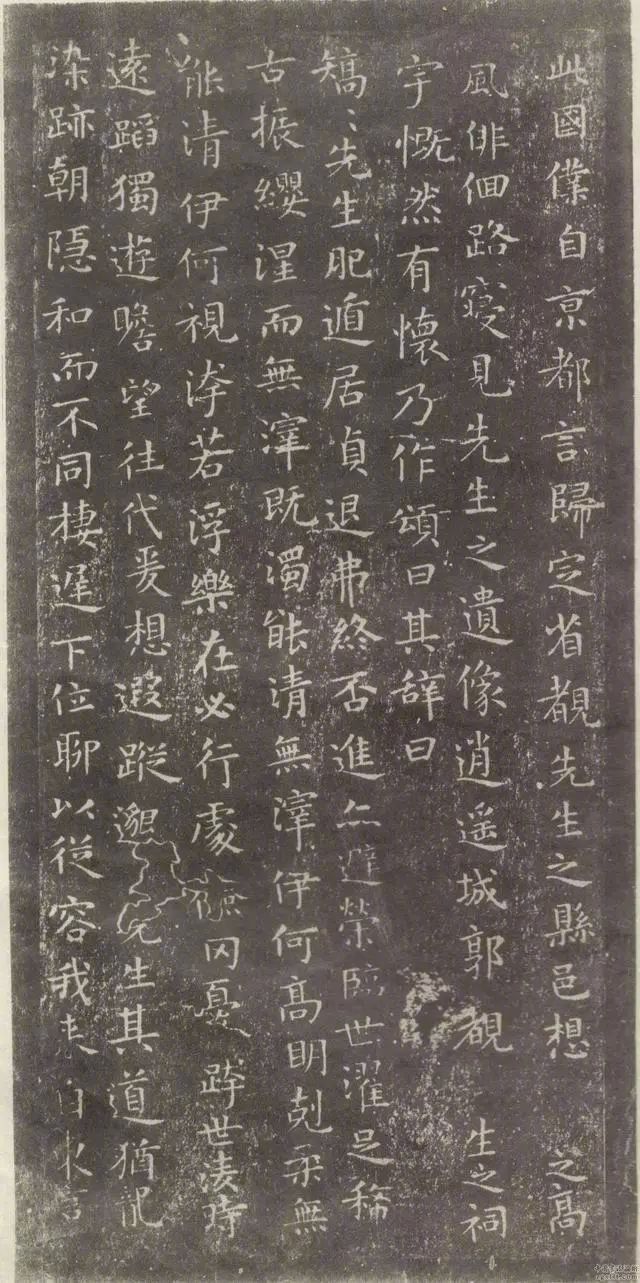 此國僕自京都言歸定省覩先生之縣邑想 之高
風俳佪路寢見先生之遺像逍遥城郭覩 生之祠
宇慨然有懷乃作頌曰其辭曰
矯〻先生肥遁居貞退弗終否進亦避榮臨世濯足稀
古振纓涅而無滓既濁能清無滓伊何高明剋柔無
能清伊何視洿若浮樂在必行處儉罔憂跨世凌時
遠蹈獨遊瞻望往代爰想遐蹤邈〻先生其道猶龍
染跡朝隱和而不同棲遲下位聊以從容我来自東言